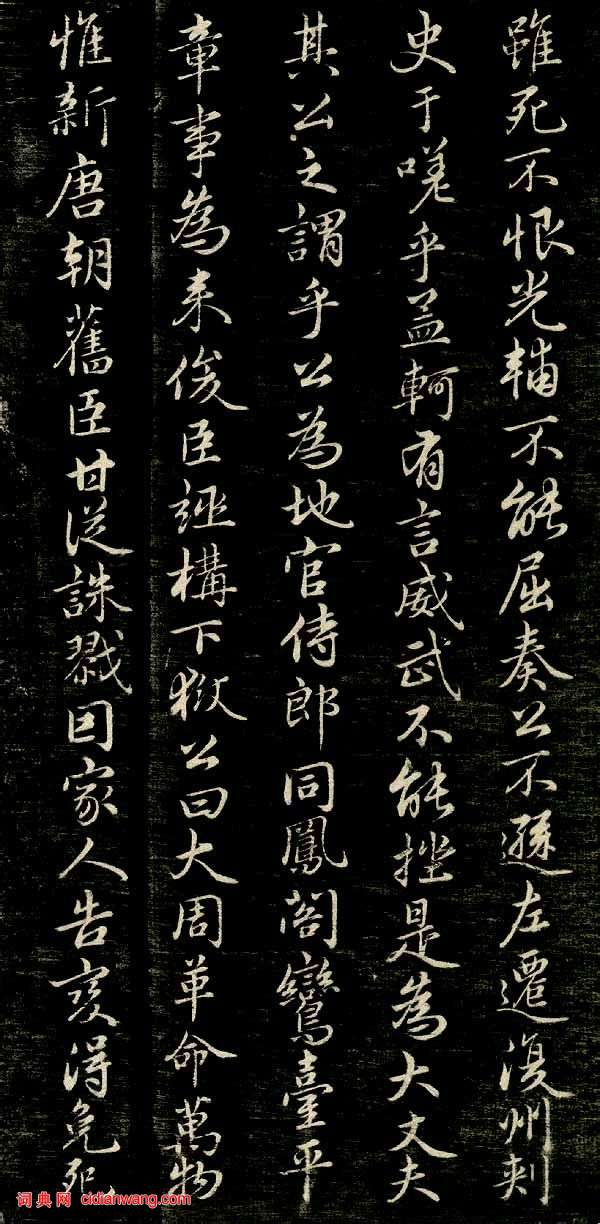 雖死不恨光輔不能屈奏公不遜左遷復州刺
史于嗟乎孟軻有言威武不能挫是為大丈夫
其公之謂乎公為地官侍郎同鳳閣鸞臺平
章事為来俊臣誣構下獄公曰大周革命萬物
惟新唐朝舊臣甘從誅戮因家人告變得免死
词典网 cidianwang.com